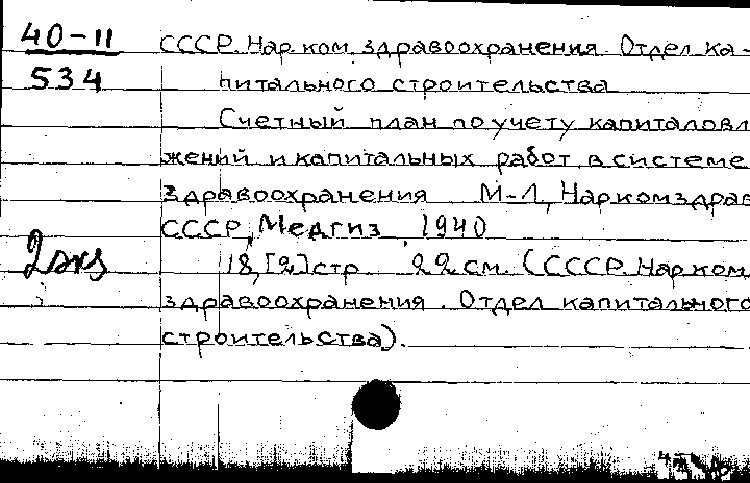 40-11
534
СССР. Нарком. здравоохранения. Отдел ка-
питального строительства
Счетный план по учету капиталовл
жений и капитальных работ в системе
здравоохранения М-Л, Наркомздрав
СССР, Медгиз, 1940
2 экз
18, [2] стр. 22 см. (СССР. Нарком.
здравоохранения. Отдел капитального
строительства).